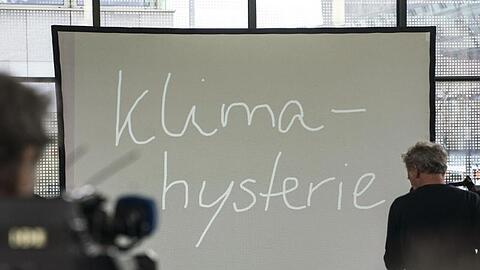 klima-
hysterie